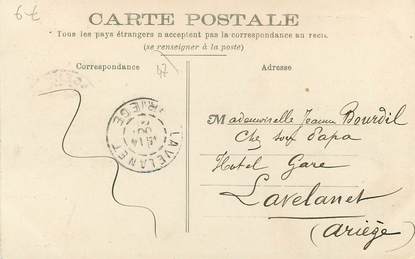 6€
CARTE POSTALE
Tous les pays étrangers n'acceptent pas la correspondance au recto.
(se renseigner à la poste)
Correspondance
Adresse
LAVELANET
ARIEGE
Mademoiselle Jeanne Bourdil
Chez son Papa
Hotel Gare
Lavelanet
(Ariège)